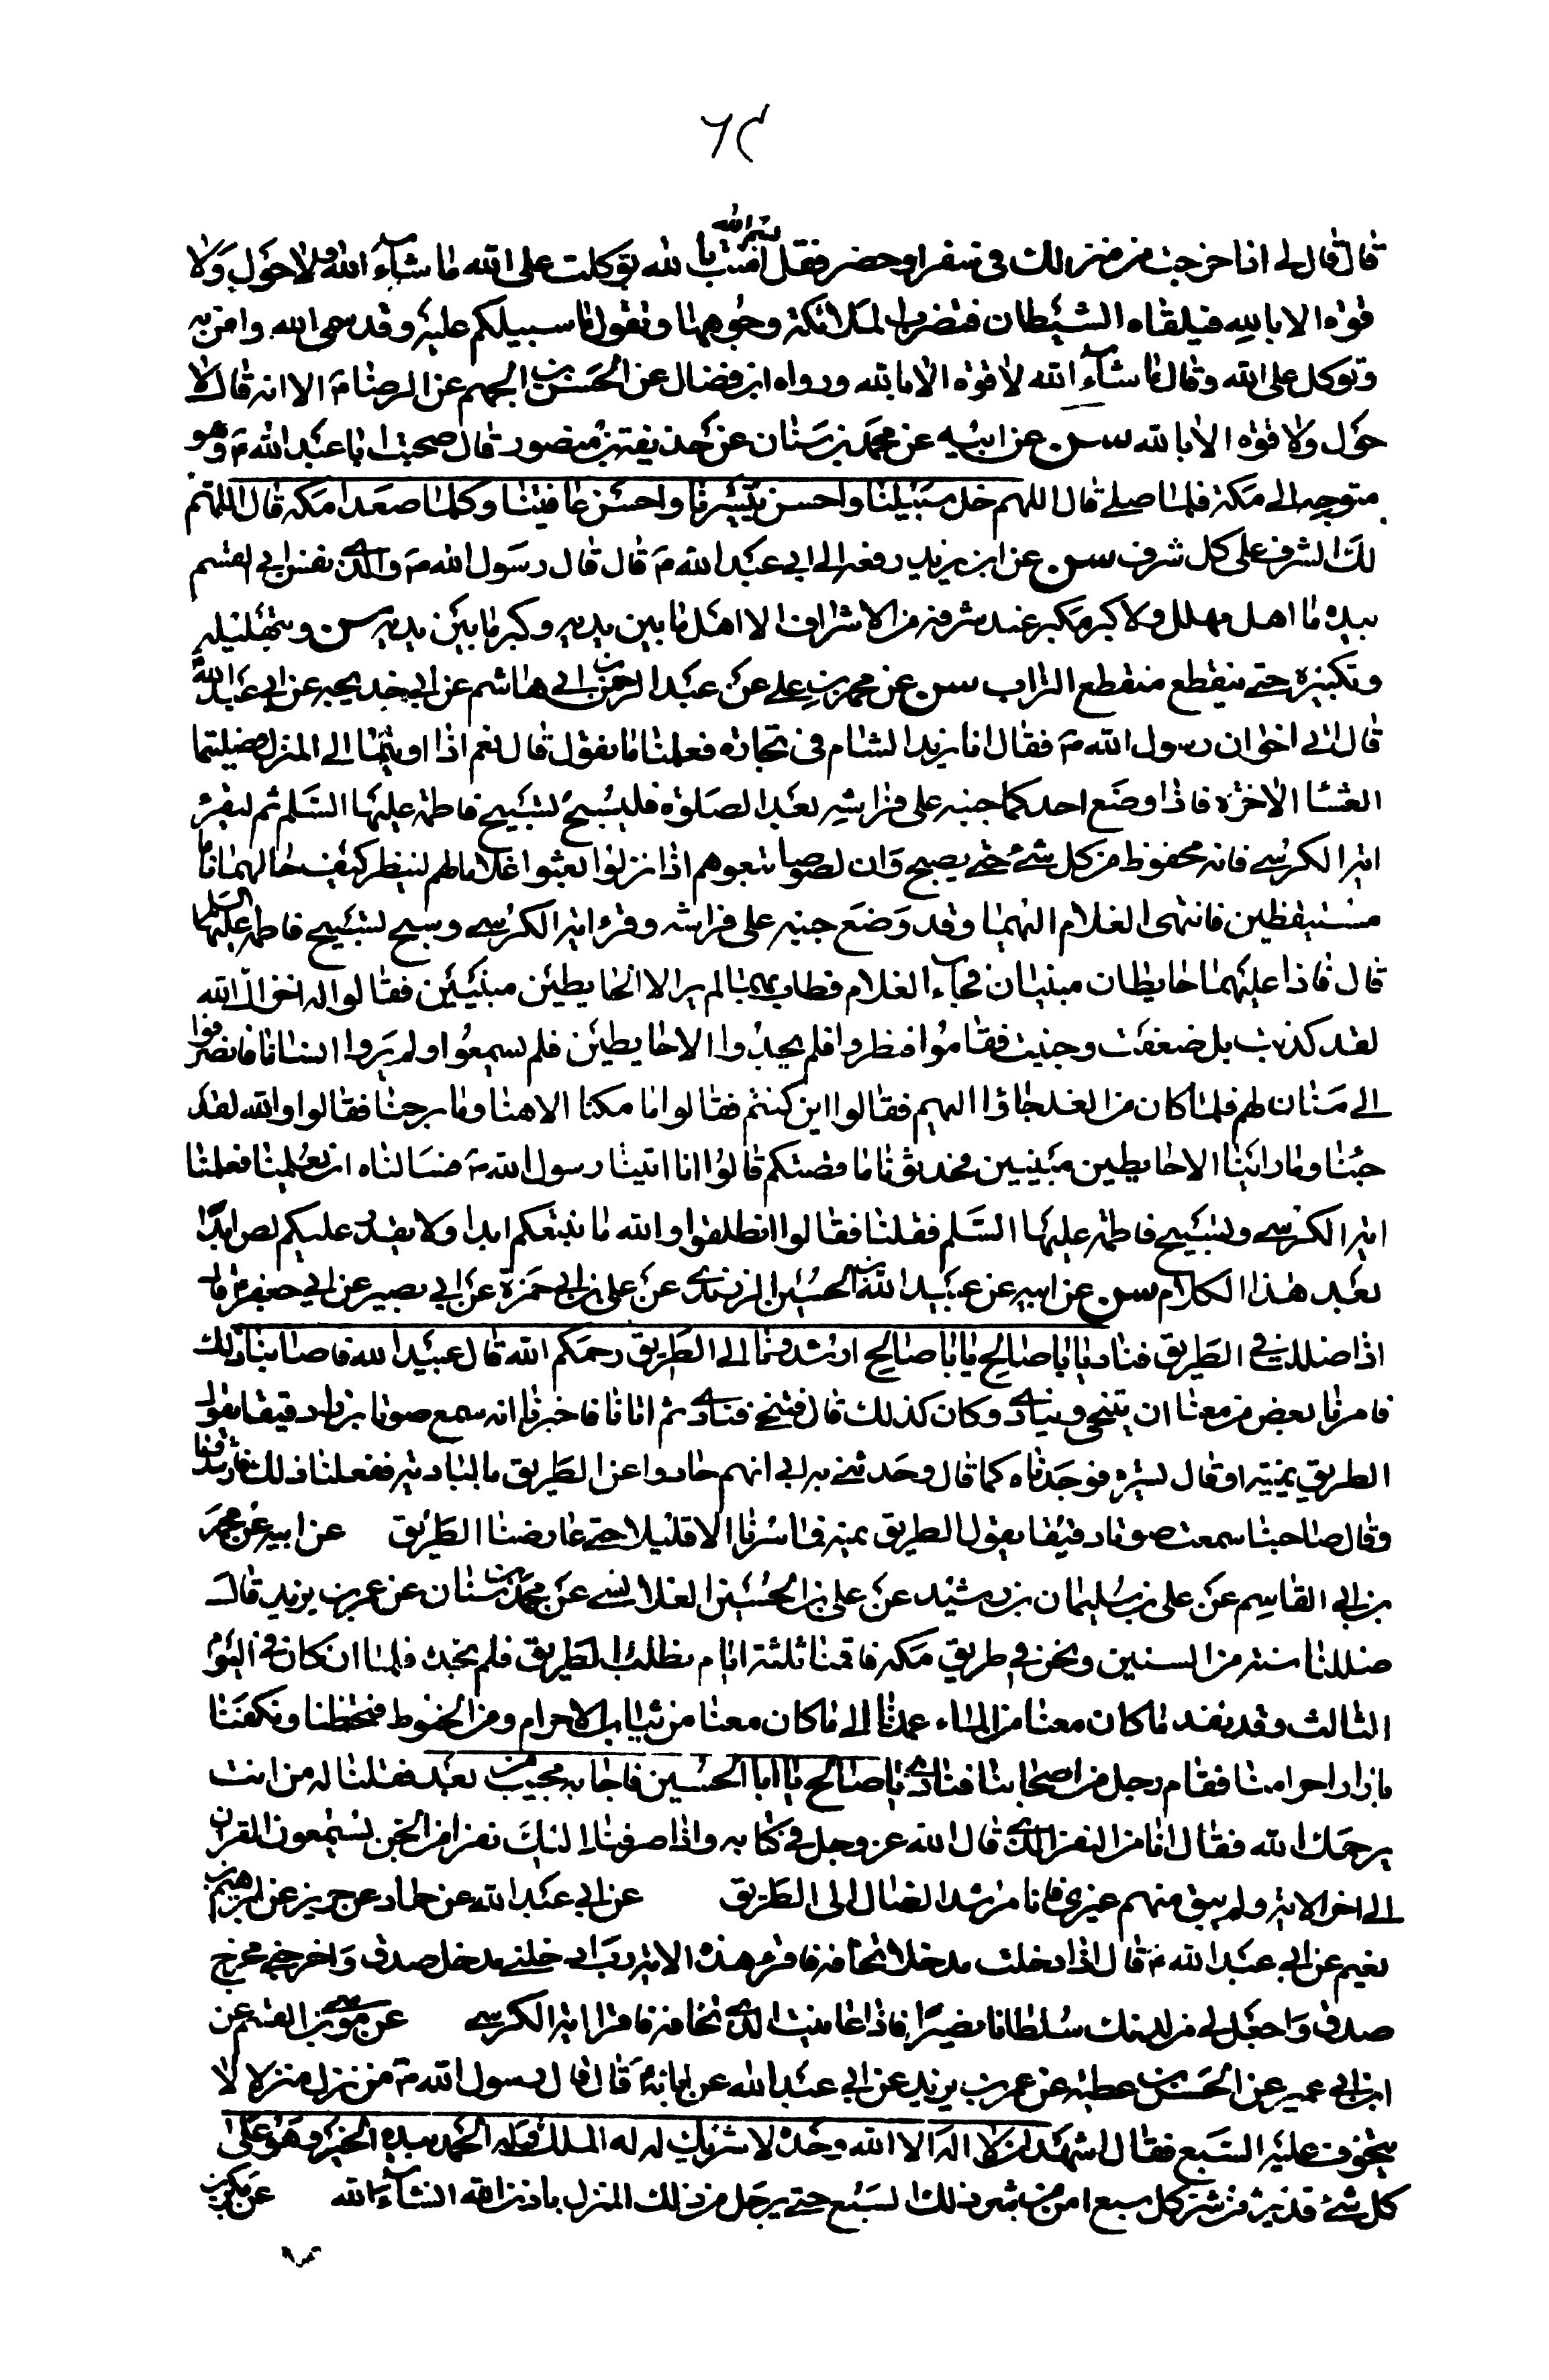 ٦٤
بسم الله
قال قال لى اذا خرجت من منزلك فى سفر او حضر فقل امنت بالله توكلت على الله ما شاء الله ولا حول ولا
قوة الا بالله فيلقاه الشيطان فتضرب الملائكة وجوهها وتقول ما سبيلكم عليه وقد سمى الله وامن به
وتوكل على الله وقال ما شاء الله لا قوة الا بالله ورواه ابن فضال عن الحسن بن الجهم عن الرضا ع الا انه قال لا
حول ولا قوة الا بالله سن عن ابيه عن محمد بن سنان عن حذيفة بن منصور قال صحبت ابا عبد الله ع وهو
متوجه الى مكة فلما صلى قال اللهم خل سبيلنا واحسن تسييرنا واحسن عافيتنا وكلما صعد اكمة قال اللهم
لك الشرف على كل شرف سن عن ابن يزيد رفعه الى ابى عبد الله ع قال قال رسول الله ص والذى نفس ابى القسم
بيده ما اهل مهلل ولا كبر مكبر عند شرف من الاشراف الا اهل ما بين يديه وكبر ما بين يديه سن وبتهليله
وتكبيره حتى ينقطع منقطع التراب سن عن محمد بن على عن عبد الرحمن بن ابى هاشم عن ابى خديجة عن ابى عبد الله
قال اتى اخوان رسول الله ص فقال انا نريد الشام فى تجارة فعلمنا ما نقول قال نعم اذا اويتما الى المنزل فصليتما
العشا الاخرة فاذا وضع احدكما جنبه على فراشه بعد الصلوة فليسبح تسبيح فاطمة عليها السلم ثم ليقرأ
اية الكرسى فانه محفوظ من كل شئ حتى يصبح وان لصوصا تبعوهم اذا نزلوا بعثوا غلاما لهم لينظر كيف حالهما ناما ام
مستيقظين فانتهى الغلام اليهما وقد وضع جنبه على فراشه وقرء اية الكرسى وسبح تسبيح فاطمة عليها السلم
قال فاذا عليهما حايطان مبنيان فجاء الغلام فطاف بهما لم ير الا الحايطين مبنيين فقالوا له اخزاك الله
لقد كذبت بل ضعفت وجبنت فقاموا فنظروا فلم يجدوا الا حايطين فلم يسمعوا ولم يروا انسانا فانصرفوا
الى مكان لهم فلما كان من الغد جاؤا اليهم فقالوا اين كنتم فقالوا ما كنا الا هنا وما برحنا فقالوا والله لقد
جئنا وما راينا الا حايطين مبنيين فحدثونا ما قصتكم قالوا انا اتينا رسول الله ص فسالناه ان يعلمنا فعلمنا
اية الكرسى وتسبيح فاطمة عليها السلم فقلنا فقالوا انطلقوا والله ما نتبعكم ابدا ولا يقدر عليكم لص ابدا
بعد هذا الكلام سن عن ابيه عن عبيد الله بن الحسين الزرندى عن على بن ابى حمزة عن ابى بصير عن ابى جعفر ع قال
اذا ضللت فى الطريق فناد يا صالح يا ابا صالح ارشدونا الى الطريق رحمكم الله قال عبيد الله فاصابنا ذلك
فامرنا بعض من معنا ان يتنحى وينادى وكان كذلك قال فتنحى فنادى ثم اتانا فاخبرنا انه سمع صوتا برز دقيقا يقول
الطريق يمنة او قال يسرة فوجدناه كما قال وحدثنى به ابى انهم حادوا عن الطريق بالبادية ففعلنا ذلك فارشدونا
وقال صاحبنا سمعت صوتا دقيقا يقول الطريق يمنة فما سرنا الا قليلا حتى عارضنا الطريق عن ابيه عن محمد
بن ابى القاسم عن على بن سليمان بن رشيد عن على بن الحسين القلانسى عن محمد بن سنان عن عمر بن يزيد قال
ضللنا سنة من السنين ونحن فى طريق مكة فاقمنا ثلثة ايام نطلب الطريق فلم نجده فلما ان كان فى اليوم
الثالث وقد نفد ما كان معنا من الماء عمدنا الى ما كان معنا من ثياب الاحرام ومن الحنوط فتحنطنا وتكفنا
بازار احرامنا فقام رجل من اصحابنا فنادى يا صالح يا ابا الحسين فاجابه مجيب من بعد فقلنا له من انت
يرحمك الله فقال انا من النفر الذى قال الله عز وجل فى كتابه واذ صرفنا اليك نفرا من الجن يستمعون القران
الى اخر الاية ولم يبق منهم غيرى فانا مرشد الضال الى الطريق عن ابى عبد الله عن حماد عن حريز عن ابرهيم بن
نعيم عن ابى عبد الله ع قال اذا دخلت مدخلا تخافه فاقرء هذه الاية رب ادخلنى مدخل صدق واخرجنى مخرج
صدق واجعل لى من لدنك سلطانا نصيرا فاذا عاينت الذى تخافه فاقرا اية الكرسى عن موسى بن القسم عن
ابن ابى عمير عن الحسن بن عطية عن عمر بن يزيد عن ابى عبد الله عن ابائه قال قال رسول الله ص من نزل منزلا
يتخوف عليه السبع فقال اشهد ان لا اله الا الله وحده لا شريك له له الملك وله الحمد بيده الخير وهو على
كل شئ قدير من شر كل سبع امن من شر ذلك السبع حتى يرحل من ذلك المنزل باذن الله انشاء الله عن بكر بن